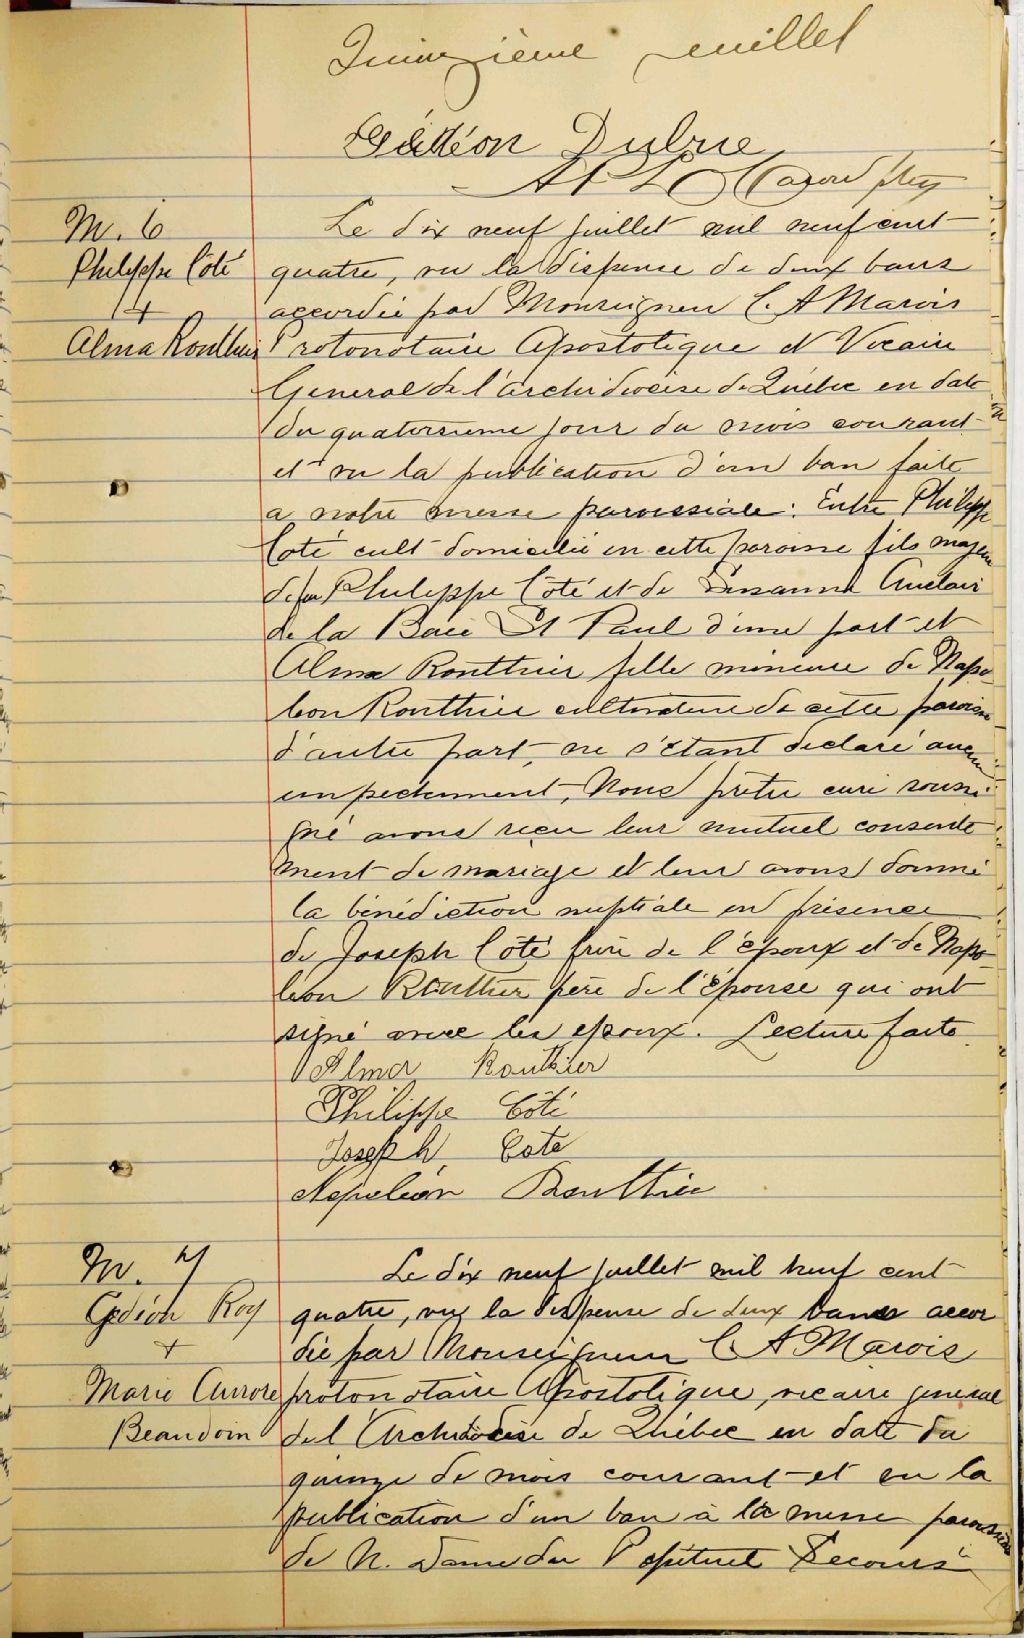 Quinzième feuillet
Gédéon Dubue
Ptre
M. 6
Philippe Côté
+
Alma Routhier
Le dix neuf juillet mil neuf cent
quatre, vu la dispense de deux bans
accordée par Monseigneur C. A Marois
Protonotaire Apostolique et Vicaire
General de l'archidiocèse de Québec en date
du quatorzieme jour du mois courant
et vu la publication d'un ban faite
a notre messe paroissiale: Entre Philippe
Coté cult domicilié en cette paroisse fils majeur
de feu Philippe Côté et de Susanna Auclair
de la Baie St Paul d'une part et
Alma Routhier fille mineure de Napo
léon Routhier cultivateur de cette paroisse
d'autre part, ne s'étant declaré aucun
empechement, Nous prêtre curé soussi
gné avons reçu leur mutuel consente
ment de mariage et leur avons donné
la bénédiction nuptiale en présence
de Joseph Côté frère de l'époux et de Napo
léon Routhier père de l'épouse qui ont
signé avec les epoux. Lecture faite
Alma Routhier
Philippe Côté
Joseph Cote
Napoléon Routhier
M. 7
Gédéon Roy
+
Marie Aurore
Beaudoin
Le dix neuf juillet mil neuf cent
quatre, vu la dispense de deux bans accor
dée par Monseigneur C A Marois
protonotaire Apostolique, vicaire general
de l'Archidiocèse de Québec en date du
quinze de mois courant et vu la
publication d'un ban à la messe paroissiale
de N. Dame du Perpétuel Secours